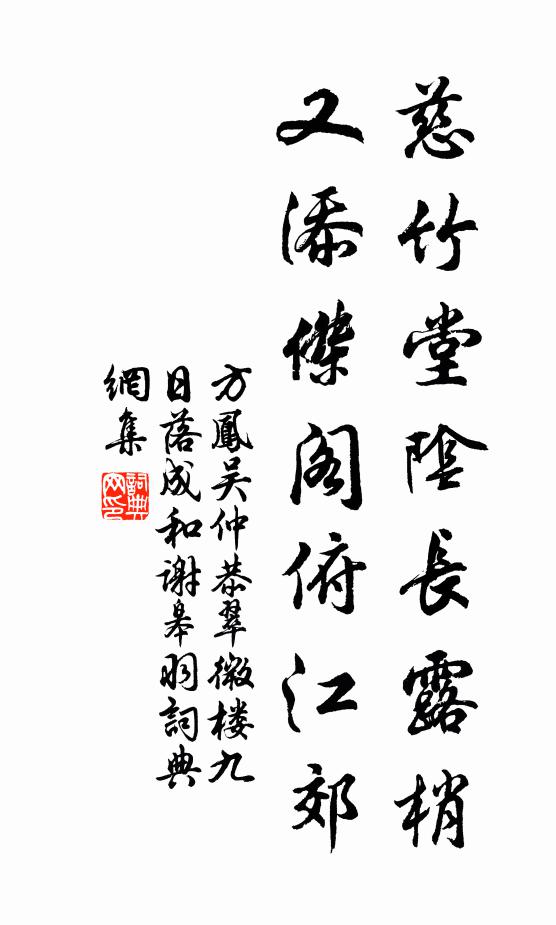 慈竹堂陰長露梢
又添傑閣俯江郊
方鳳吴仲恭翠微楼九
日落成和谢皋羽詞典
網集
詞典网印